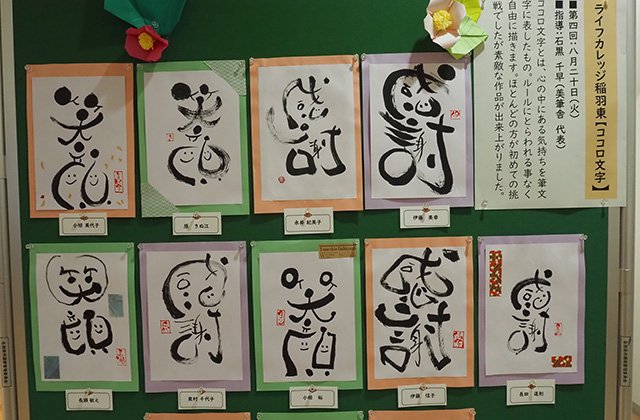 ライフカレッジ稲羽東【ココロ文字】
■第四回:八月二十日(火)
■指導:石黒 千早(美筆舎 代表)
ココロ文字とは、心の中にある気持ちを筆文
字に表したもの。ルールにとらわれる事なく
自由に描きます。ほとんどの方が初めての挑
戦でしたが素敵な作品が出来上がりました。
笑顔
笑顔
感謝
感謝
小椋 美代子
きぬ江
永井 紀美子
伊藤 美幸
笑顔
感謝
笑顔
感謝
感謝
長瀬 敏之
奥村 千代子
小椋 裕
伊藤 信子
長田 道則